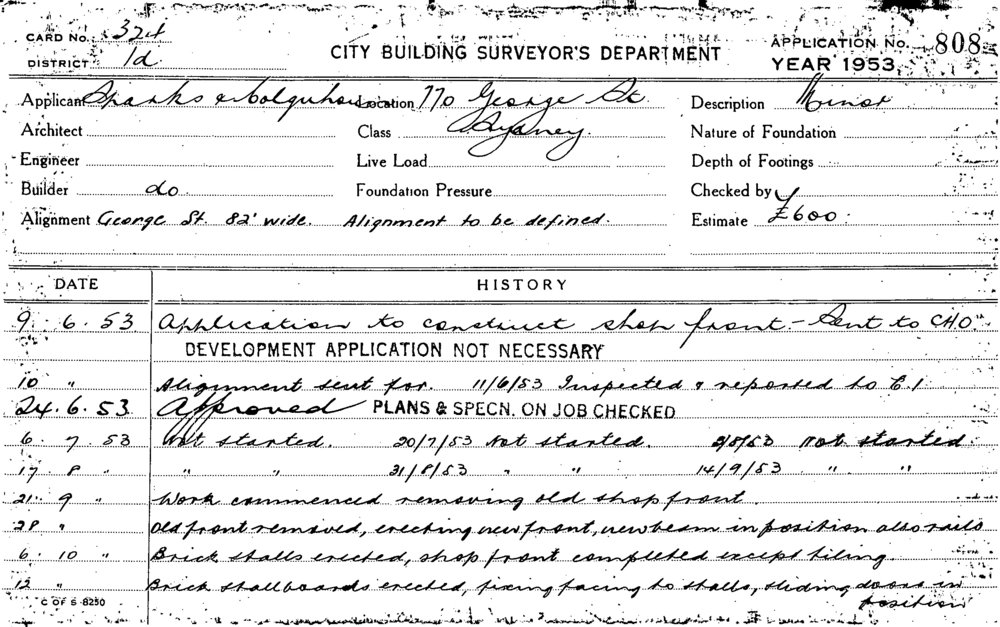 CARD No. 324
DISTRICT 1d
CITY BUILDING SURVEYOR'S DEPARTMENT
APPLICATION No. 808
YEAR 1953
Applicant Sparks & Colquhoun Location 770 George St. Sydney. Description Minor
Architect Class Nature of Foundation
Engineer Live Load Depth of Footings
Builder do Foundation Pressure Checked by
Alignment George St. 82' wide. Alignment to be defined. Estimate £600.
DATE HISTORY
9. 6. 53 Application to construct shop front - Sent to CHO
DEVELOPMENT APPLICATION NOT NECESSARY
10 " Alignment sent for. 11/6/53 Inspected & reported to C.I
24. 6. 53 Approved PLANS & SPECN. ON JOB CHECKED
6. 7. 53 Not started. 20/7/53 Not started. 3/8/53 Not started.
17 8 " " " 31/8/53 " " 14/9/53 " "
21. 9 " Work commenced removing old shop front.
28 " " Old front removed, erecting new front, new beam in position also rails
6. 10 " Brick stalls erected, shop front completed except tiling.
12 " " Brick stallboards erected, fixing facing to stalls, sliding doors in position
C OF S 8250